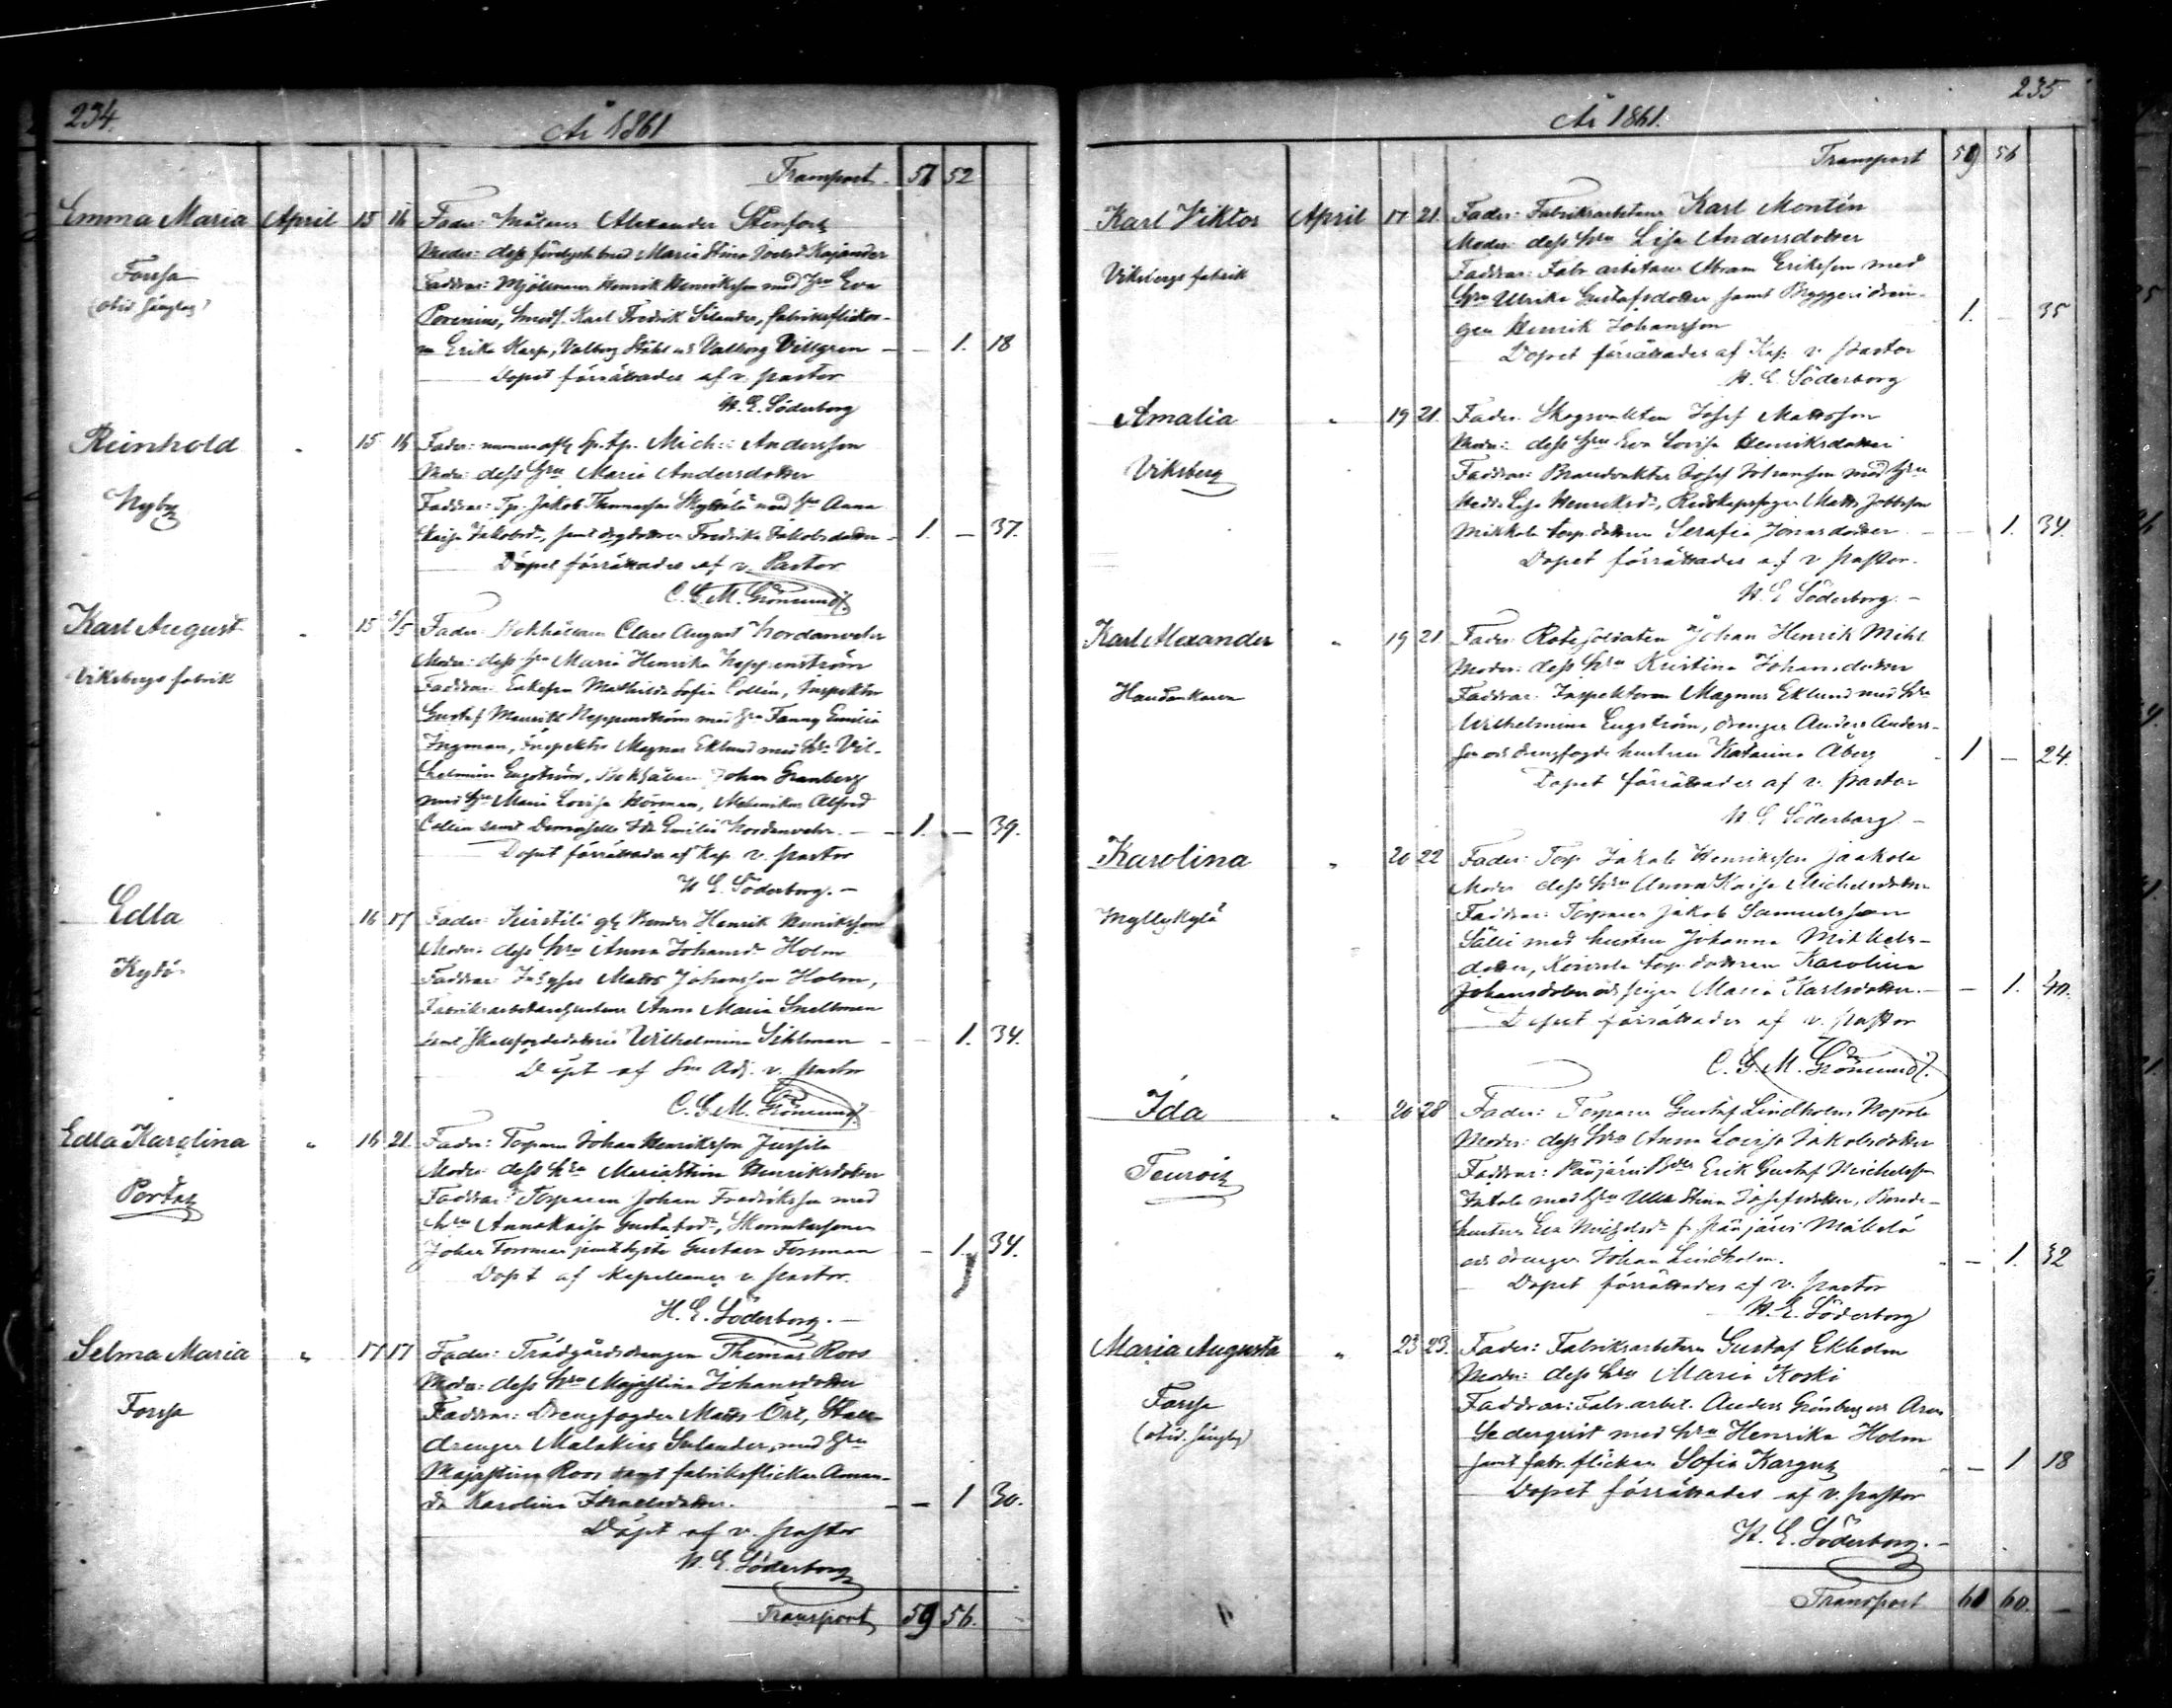 234.
År 1861
Transport 57 52
Emma Maria April 15 16 Fader: Målaren Alexander Stenfors
Moder: dess Maria Stina Kajander
Forssa
Faddrar: Mjölnaren Henrik Henriksson med Hru Eva
Karl Fredrik Silander, fabriksflickor-
na Erika Karp, Valborg Ståhl och Valborg Villgren — — 1. 18
Dopet förrättades af v. pastor
H. E. Söderborg
Reinhold " 15 16 Fader: Mich: Andersson
Moder: dess Hru Maria Andersdotter
Nyby
Faddrar: Tp. Jakob Thomasson Skyttälä med Hru Anna
Kaisa Jakobsd:, samt Fredrika Jakobsdotter — 1. — 37.
Dopet förrättades af v. Pastor
C. G. M. Grönlund
Karl August " 15 5/5 Fader: Bokhållaren Claes August Nordenswahn
Moder: dess Hru Maria Henrika Heppenström
Viksbergs fabrik
Faddrar: Enkefru Mathilda Sofia Collin, Inspektor
Gustaf Mauritz Heppenström med Hru Fanny Emilia
Ingman, Inspektor Magnus Eklund med Hru Vil-
helmina Engström, Bokhållare Johan Granberg
med Hru Maria Lovisa Hörman, Mekanikus Alfred
Collin samt Demoiselle Ida Emilia — 1. — 39.
Dopet förrättades af Kap. v. pastor
H. E. Söderborg. —
Edla 16 17 Fader: Henrik Henriksson
Moder: dess Hru Anna Johansd: Holm
Kytö
Faddrar: Matts Johansson Holm,
Fabriksarbetarehustrun Anna Maria Snellman
samt Wilhelmina Sihlman — — 1. 34.
Döpt af v. pastor
C. G. M. Grönlund
Edla Karolina " 16 21. Fader: Torparen Johan Henriksson Jussila
Moder: dess Hru Maria Stina Henriksdotter
Portas
Faddrar: Torparen Johan Fredriksson med
Hru Anna Kaisa Gustafsd:,
Johan Forsman Gustava Forsman — 1. 34.
Döpt af Kapellanen v. pastor.
H. E. Söderborg. —
Selma Maria " 17 17 Fader: Trädgårdsdrengen Thomas Roos
Moder: dess Hru Majastina Johansdotter
Forssa
Faddrar: Drengfogden Matts Ört, Stall-
drengen Malakias Sulander, med Hru
Majastina Roos samt fabriksflickan Aman-
da Karolina Israelsdotter. — — 1 30.
Döpt af v. pastor
H. E. Söderborg
Transport 59 56.
235
År 1861.
Transport 59 56
Karl Viktor April 17 21. Fader: Fabriksarbetaren Karl Montin
Moder: dess hru Lisa Andersdotter
Viksbergs fabrik
Faddrar: Fabr. arbetaren Abram Eriksson med
Hru Ulrika Gustafsdotter samt Bryggeridren-
gen Henrik Johansson 1. — 35
Dopet förrättades af Kap. v. pastor
H. E. Söderborg
Amalia " 19 21. Fader: Skogvakten Josef Mattsson
Moder: dess hru Eva Lovisa Henriksdotter
Viksberg
Faddrar: Brandvakten Josef Johansson med hru
Hedda Lisa Henriksd:, Matts Jobsson
Mikkola torp. dottern Serafia Jonasdotter — — 1. 34.
Dopet förrättades af v. pastor.
H. E. Söderborg. —
Karl Alexander " 19 21 Fader: Rotesoldaten Johan Henrik Mihl
Moder: dess hru Kristina Johansdotter
Faddrar: Inspektoren Magnus Eklund med hru
Wilhelmina Engström, drengen Anders Anders-
son och drengfogde hustrun Katarina Åberg 1 — 24.
Dopet förrättades af v. pastor
H. E. Söderborg —
Karolina " 20 22 Fader: Torp. Jakob Henriksson Jaakola
Moder: dess hru Anna Kaisa Michelsdotter
Myllykylä
Faddrar: Torparen Jakob Samuelsson
Sälli med hustru Johanna Mikkels-
dotter, torp. dottren Karolina
Johansdotter och pigan Maria Karlsdotter. — — 1. 40.
Dopet förrättades af v. pastor
C. G. M. Grönlund
Ida " 20 28 Fader: Torparen Gustaf Lindholm Nopola
Moder: dess hru Anna Lovisa Jakobsdotter
Teurois
Faddrar: Erik Gustaf Michelsson
med hru Ulla Stina Josefsdotter, Bonde-
hustrun Eva Michelsd: Mäkelä
och drengen Johan Lindholm. — 1. 32
Dopet förrättades af v. pastor
H. E. Söderborg
Maria Augusta " 23 23. Fader: Fabriksarbetaren Gustaf Ekholm
Moder: dess hru Maria Koski
Forssa
Faddrar: Fabr. arbet. Anders Grönberg och Aron
Sederqvist med hru Henrika Holm
samt fabr. flickan Sofia — 1 18
Dopet förrättades af v. pastor
H. E. Söderborg. —
Transport 61 60. —